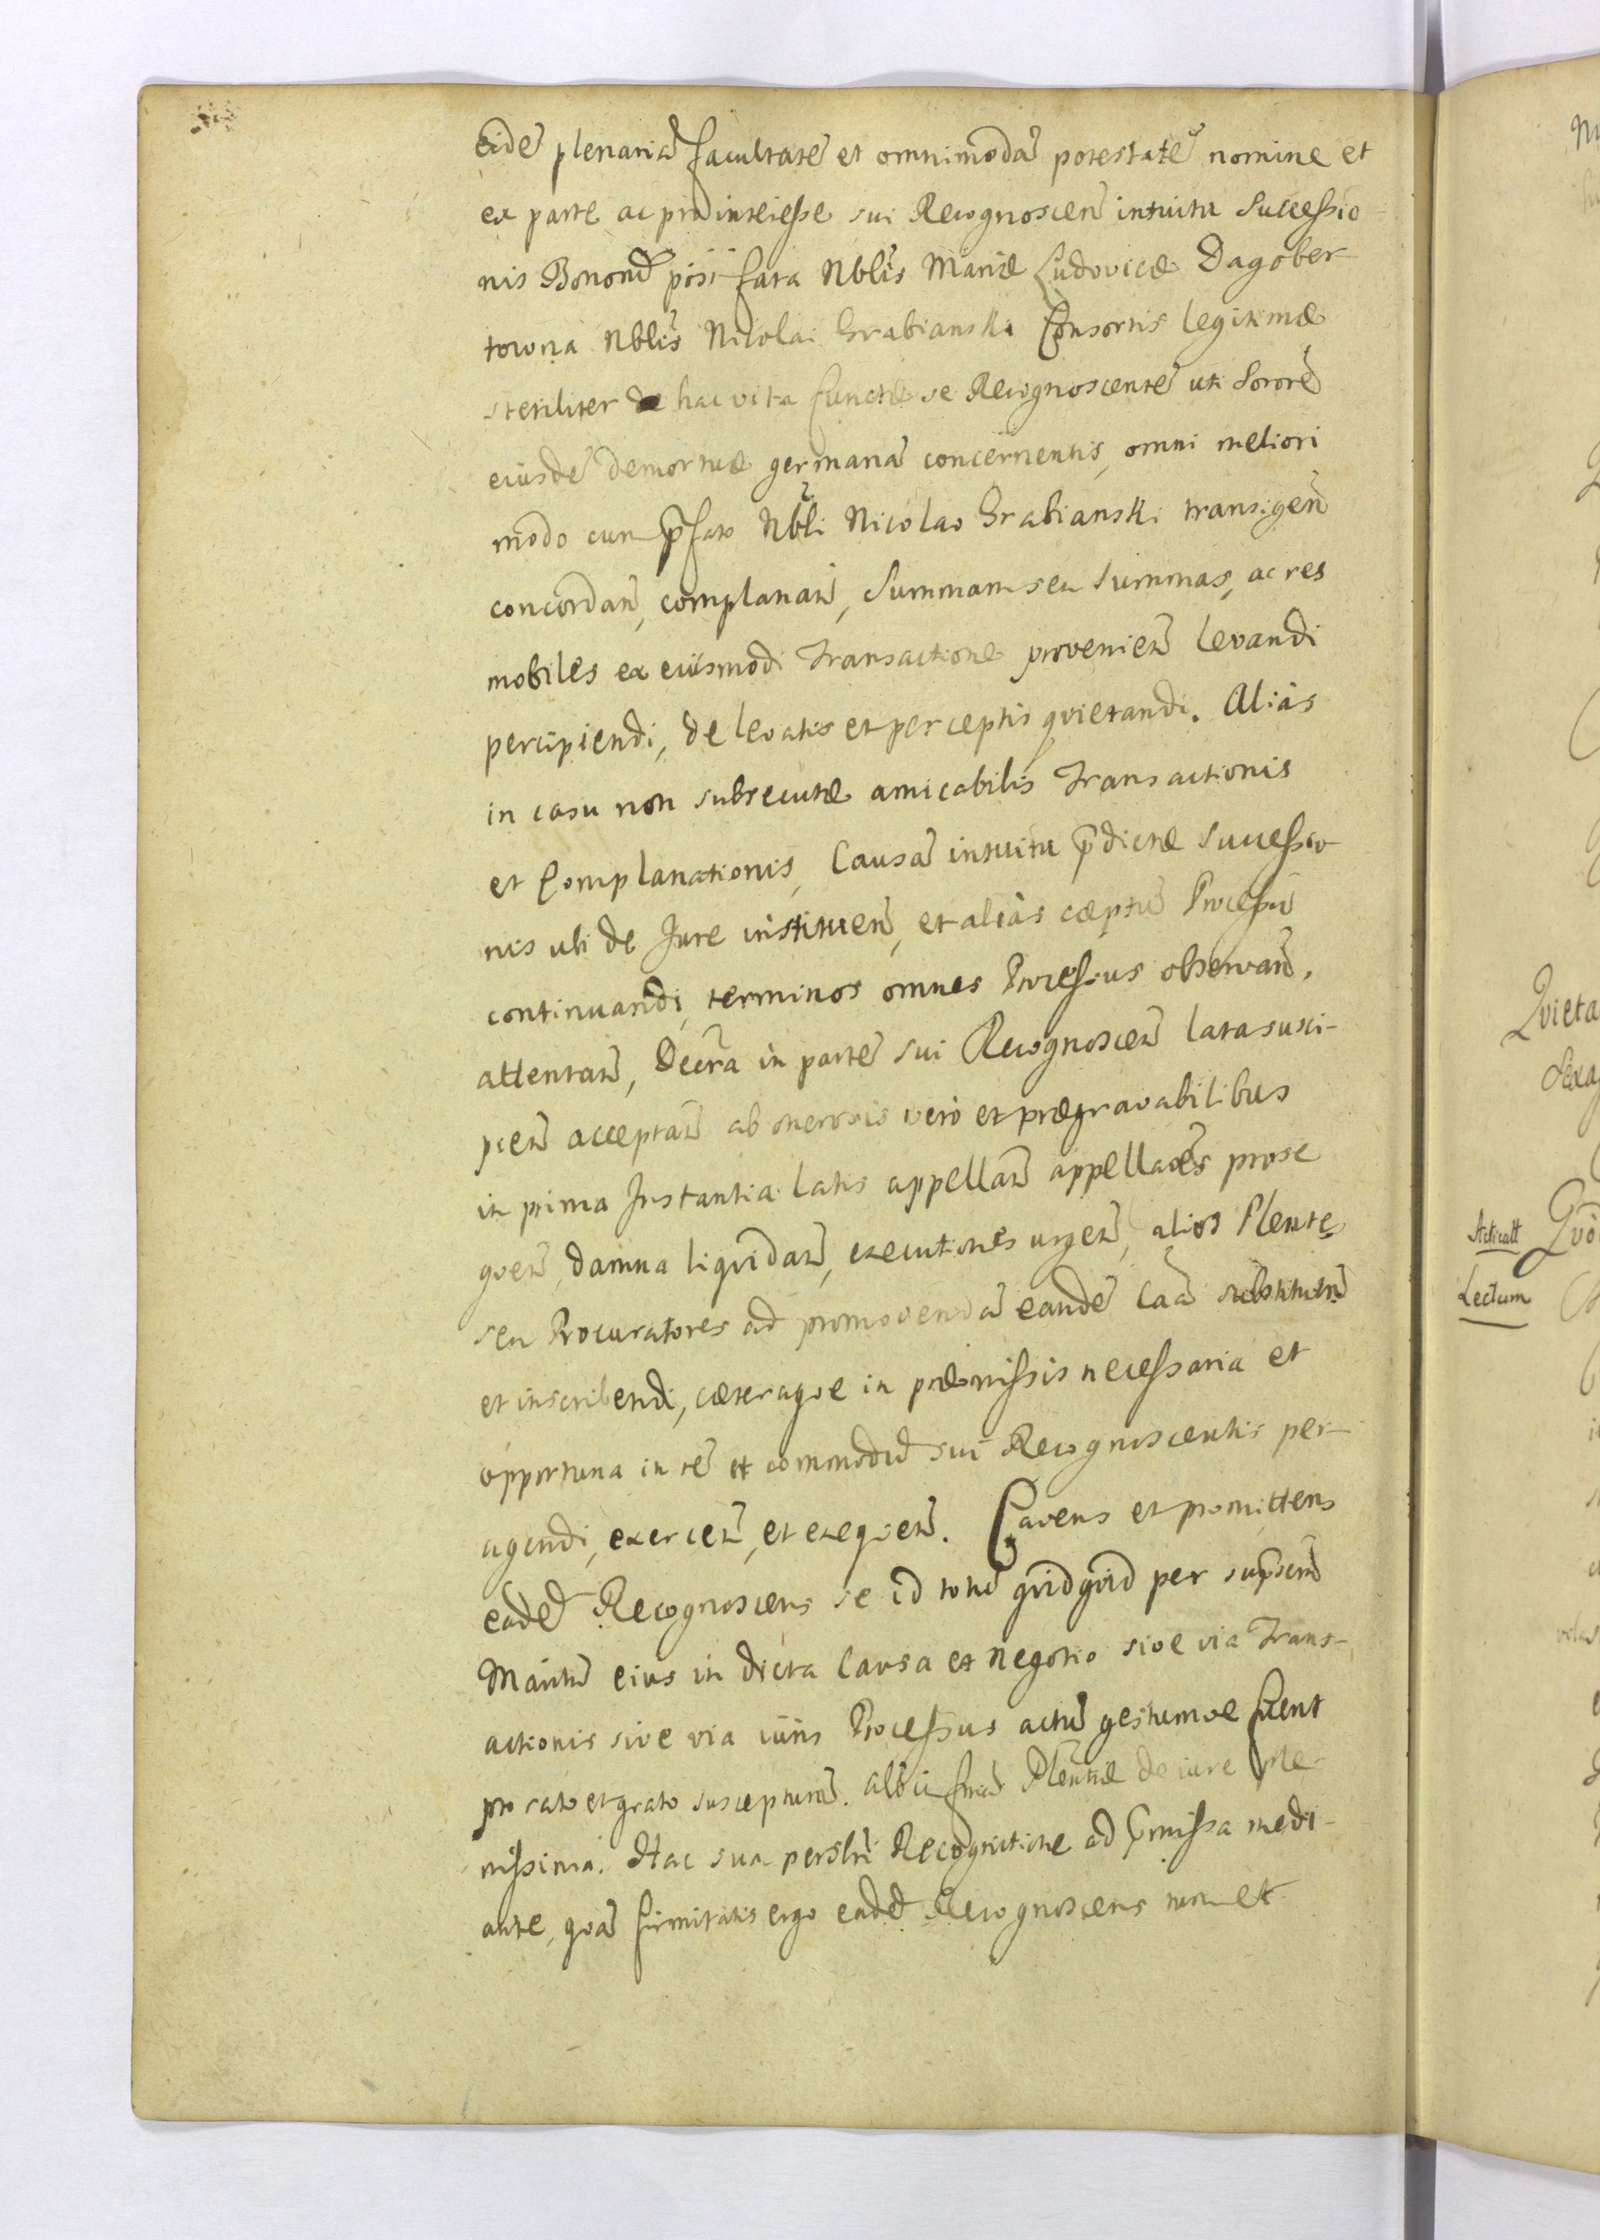 eidē plenariā facultatē et omnimodā potestatē nomine et
ex parte ac pro interesse sui Recognoscen̄ intuitu Successio
nis Bonorū post fata Nblis Mariæ Ludovicæ Dagober-
towna Nblis Nicolai Grabianski Consortis legitimæ
steriliter de hac vita functæ se Recognoscentē uti Sororē
eiusdē demortuæ germanā concernentis, omni meliori
modo cum p̄fato Nbli Nicolao Grabianski transigen̄
concordan̄, complanan̄, Summam seu Summas, ac res
mobiles ex eiusmodi Transactione provenien̄ levandi
percipiendi, de levatis et perceptis qvietandi. Aliàs
in casu non subsecutæ amicabilis Transactionis
et Complanationis, Causā intuitu p̄dictæ Successio-
nis ubi de Jure instituen̄, et aliàs cæptū Processū
continuandi, terminos omnes Processus observan̄,
attentan̄, Decr̄a in partē sui Recognoscen̄ lata susci-
pien̄ acceptan̄ ab onerosis verò et prægravabilibus
in prima Instantia latis appellan̄ appellaões prose
qven̄, damna liqvidan̄, executiones urgen̄, alios Plente
seu Procuratores ad promovendā eandē Caā substituen̄
et inscribendi, cæteraqve in præmissis necessaria et
opportuna in rē et commodū sui Recognoscentis per-
agendi, exercen̄, et exeqven̄. Cavens et promittens
eadē Recognoscens se id totū qvidqvid per sup̄scrm̄
Maritū eius in dicta Causa et negotio sive via Trans-
actionis sive via iuris Processus actū gestumve fuerit
pro rato et grato suscepturā. Plenæ de iure ple-
nissima. Hac sua perslri Recognitione ad p̄missa medi-
ante, qvā firmitatis ergo eadē Recognoscens non et
Qvieta
Acticatt
Lectum